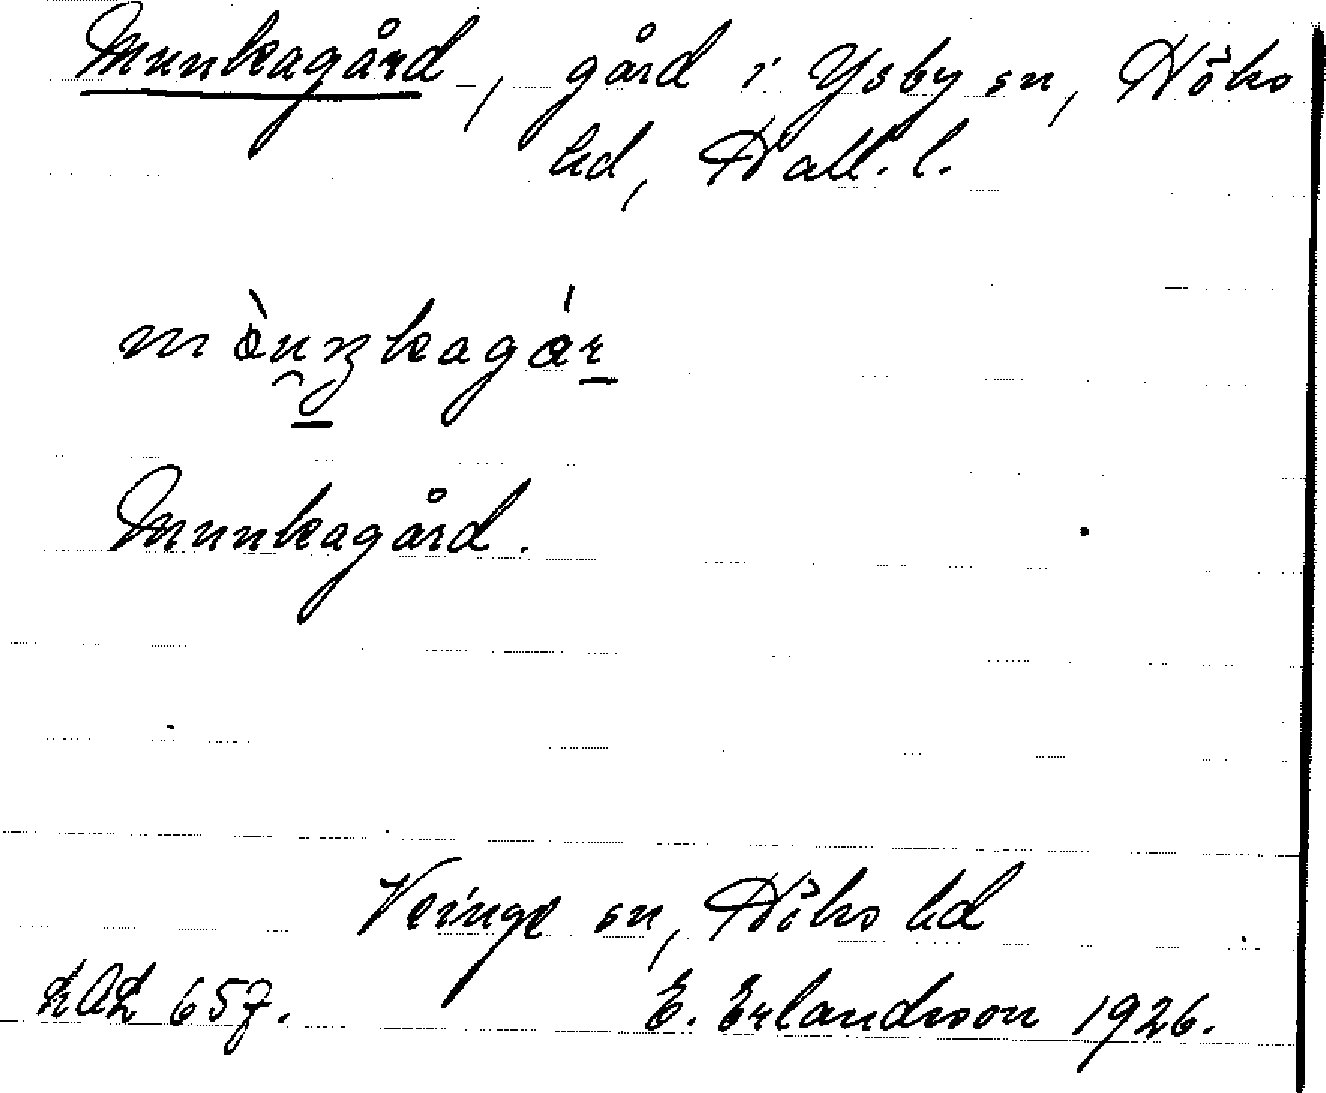 Munkagård, gård i Ysby sn, Höks
hd, Hall. l.
Munkagård.
Veinge sn, Höks hd
E. Erlandsson 1926.